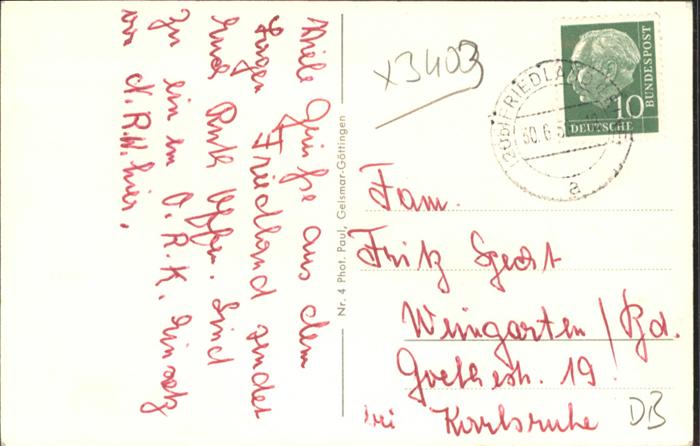 Viele Grüße aus dem
Lager Friedland sendet
Euch Ruth. Sind
zu ein im D.R.K. Einsatz
von N.R.W. hier.
Nr. 4 Phot. Paul, Geismar-Göttingen
x3403
(20b) FRIEDLAND
30.6.5
a
10
DEUTSCHE
BUNDESPOST
Fam.
Fritz Specht
Weingarten / Bd.
Goethestr. 19
bei Karlsruhe
DB